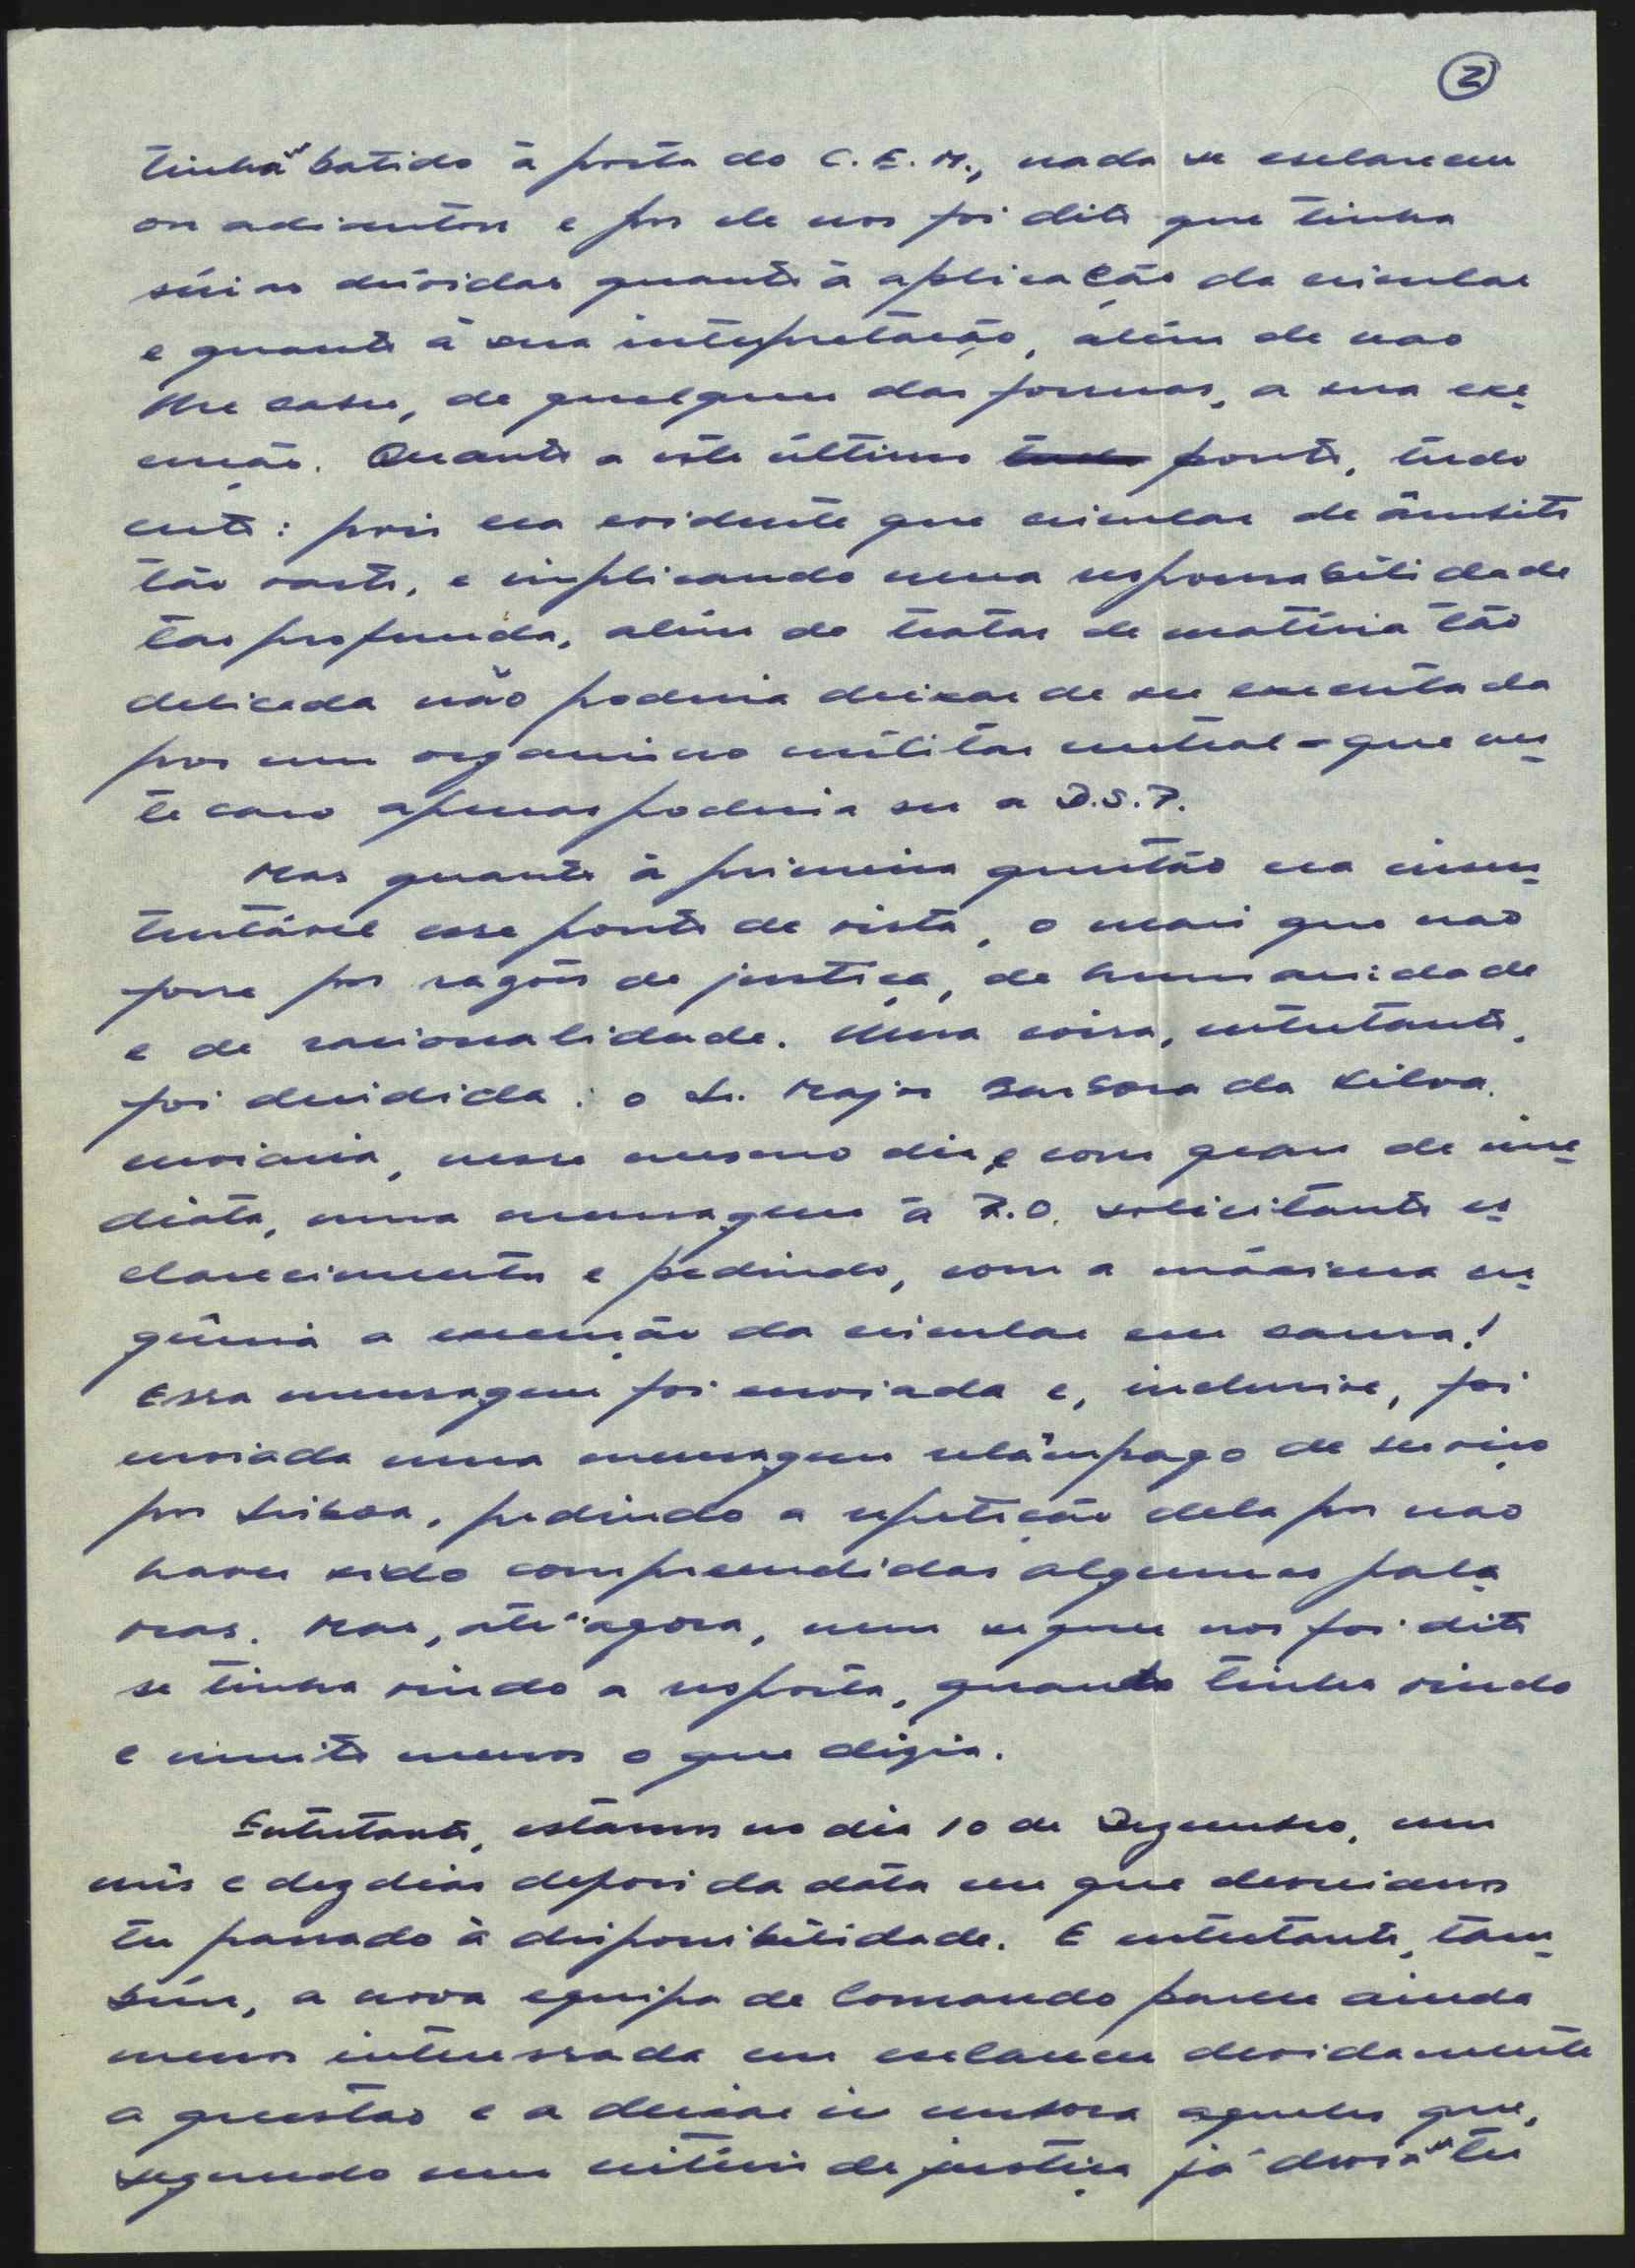 2
tinham batido à porta do C.E.M., nada se esclareceu
ou adiantou e por ele nos foi dito que tinha
sérias dúvidas quanto à aplicação da circular
e quanto à sua interpretação, além de nao
lhe caber, de qualquer das formas, a sua exe-
cução. Quanto a este último tudo ponto, tudo
certo: pois era evidente que circular de âmbito
tão vasto, e implicando uma responsabilidade
tao profunda, além de tratar de matéria tão
delicada não poderia deixar de ser executada
por um organismo militar central - que nes-
te caso apenas poderia ser a D.S.P.
Mas quanto à primeira questão era insus-
tentável esse ponto de vista, o mais que nao
fosse por razões de justiça, de humanidade
e de racionalidade. Uma coisa, entretanto,
foi decidida: o Sr. Major Barbosa da Silva.
enviaria, nesse mesmo dia, e com grau de ime-
diata, uma mensagem à R.O. solicitanto es-
clarecimentos e pedindo, com a máxima ur-
gência a execução da circular em causa!
Essa mensagem foi enviada e, inclusive, foi
enviada uma mensagem relâmpago de serviço
por Lisboa, pedindo a repetição dela por nao
haver sido compreendidas algumas pala-
vras. Mas, até agora, nem sequer nos foi dito
se tinha vindo a resposta, quando tinha vindo
e muito menos o que dizia.
Entretanto, estamos no dia 10 de Dezembro, um
mês e dez dias depois da data em que deveriamos
ter passado à disponibilidade. E entretanto, tam-
bém, a nova equipa de Comando parece ainda
menos interessada em esclarecer devidamente
a questao e a deixar ir embora aqueles que,
segundo um critério de justiça já deviam ter